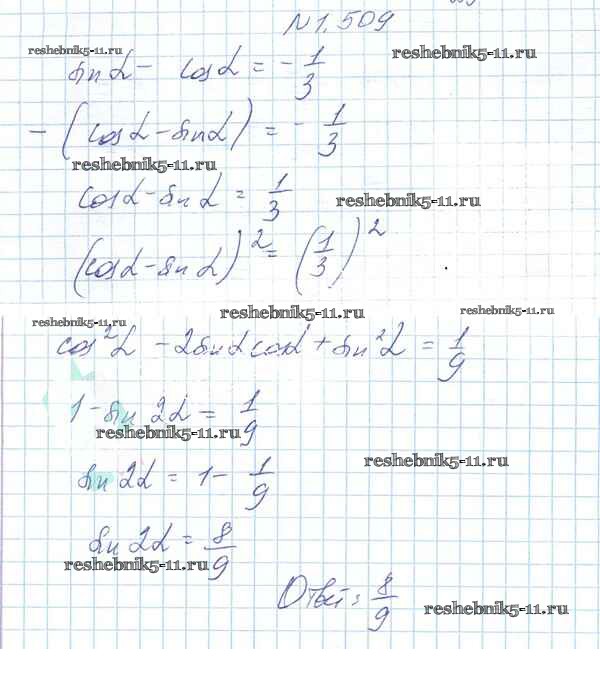 N 1.509
reshebnik5-11.ru
reshebnik5-11.ru
sin α - cos α = - 1/3
- (cos α - sin α) = - 1/3
reshebnik5-11.ru
cos α - sin α = 1/3
reshebnik5-11.ru
(cos α - sin α)² = (1/3)²
reshebnik5-11.ru
reshebnik5-11.ru
reshebnik5-11.ru
cos² α - 2 sin α cos α + sin² α = 1/9
1 - sin 2α = 1/9
reshebnik5-11.ru
reshebnik5-11.ru
sin 2α = 1 - 1/9
sin 2α = 8/9
reshebnik5-11.ru
Ответ: 8/9
reshebnik5-11.ru